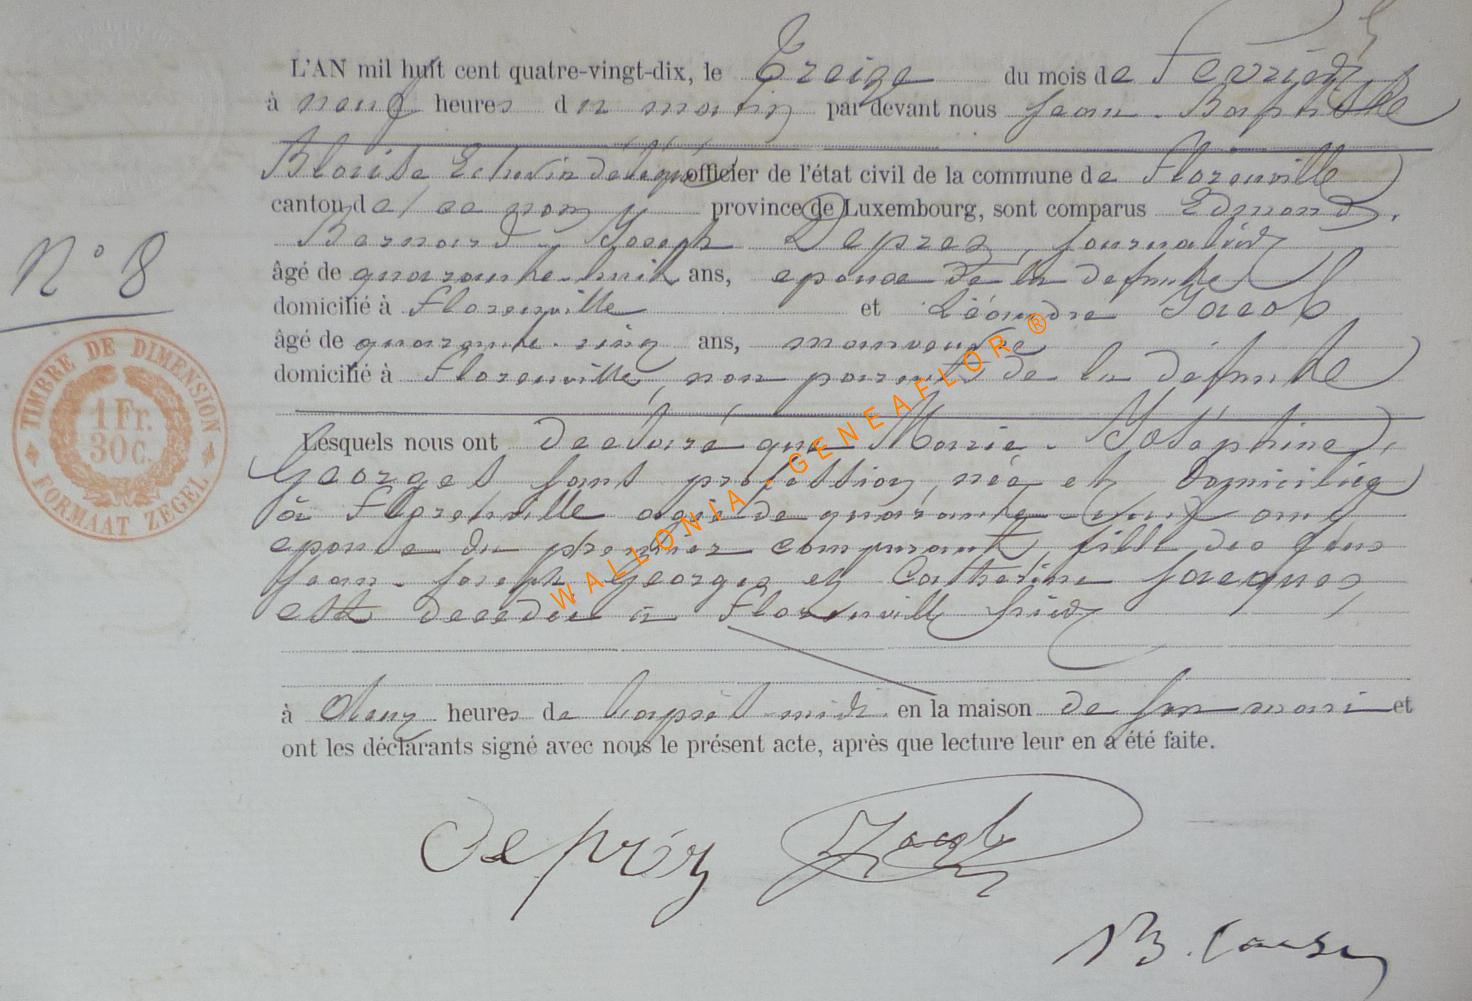 L'AN mil huit cent quatre-vingt-dix, le Treize du mois de Février
à neuf heures du matin par devant nous Jean-Baptiste
Echevin délégué officier de l'état civil de la commune de Florenville
canton de ce nom province de Luxembourg, sont comparus Edmond,
Bernard, Joseph Deprez, journalier
âgé de quarante-huit ans, epoux de la defunte
domicilié à Florenville et Léandre Jacob
âgé de quarante-cinq ans, manoeuvre
domicilié à Florenville, non parent de la défunte
Lesquels nous ont declaré que Marie-Joséphine,
Georges sans profession, née et domiciliée
à Florenville agée de quarante- ans
epouse du premier comparant, fille des feus
Jean-Joseph Georges et Catherine Jacques,
est decedée à Florenville hier
à heures de l'après-midi en la maison de son mari et
ont les déclarants signé avec nous le présent acte, après que lecture leur en a été faite.
N° 8
TIMBRE DE DIMENSION
1 Fr.
30 c.
FORMAAT ZEGEL
WALLONIA - GENEAFLOR ®
Deprèz Jacob